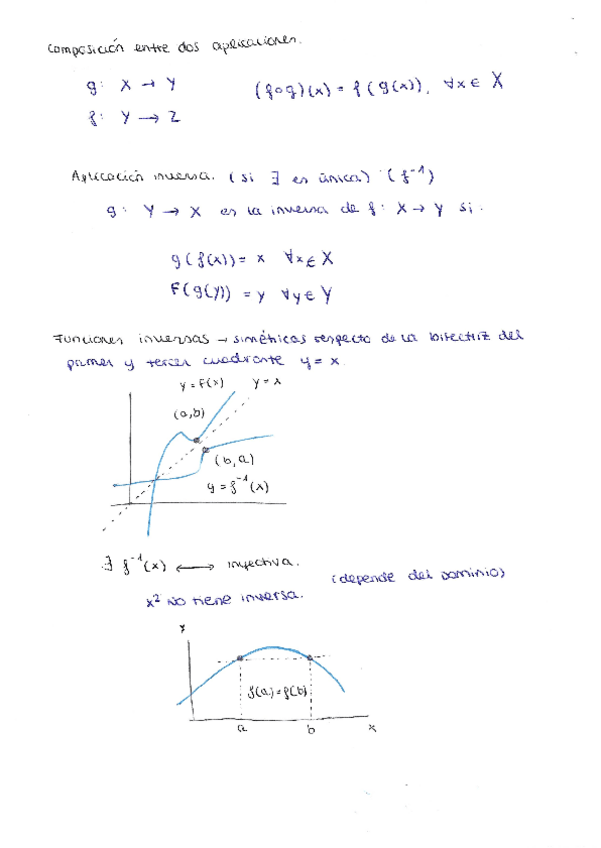 Composición entre dos aplicaciones.
g: X → Y (f∘g)(x) = f(g(x)), ∀x ∈ X
f: Y → Z
Aplicación inversa. (si ∃ es única) (f⁻¹)
g: Y → X es la inversa de f: X → Y si:
g(f(x)) = x ∀x ∈ X
F(g(y)) = y ∀y ∈ Y
Funciones inversas → simétricas respecto de la bisectriz del
primer y tercer cuadrante y = x.
y = F(x) y = x
(a,b)
(b,a)
y = f⁻¹(x)
∃ f⁻¹(x) ⟷ inyectiva.
(depende del dominio)
x² NO tiene inversa.
y
f(a) = f(b)
a b x